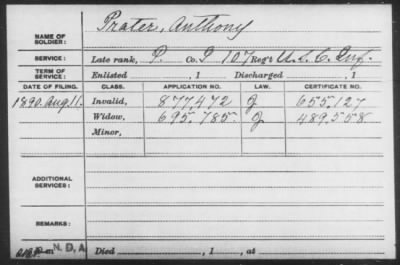 NAME OF SOLDIER: Prater, Anthony
SERVICE: Late rank, P. Co. I 107 Reg't U.S.C. Inf.
TERM OF SERVICE: Enlisted , 1 Discharged , 1
DATE OF FILING. CLASS. APPLICATION NO. LAW. CERTIFICATE NO.
1890. Aug 11. Invalid, 877,472 J 655.127
Widow, 695.785. J 489,558
Minor,
ADDITIONAL SERVICES:
REMARKS:
N.D.A Died , 1 , at